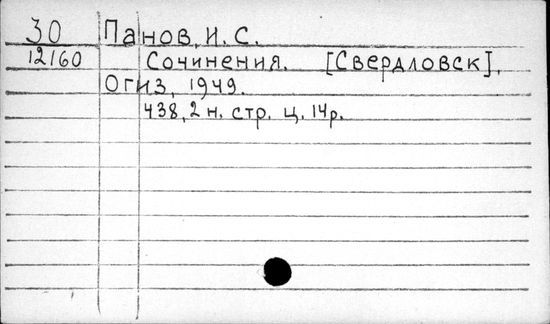 30 Панов, И. С.
12160 Сочинения. [Свердловск],
Огиз, 1949.
438, 2 н. стр. ц. 14р.